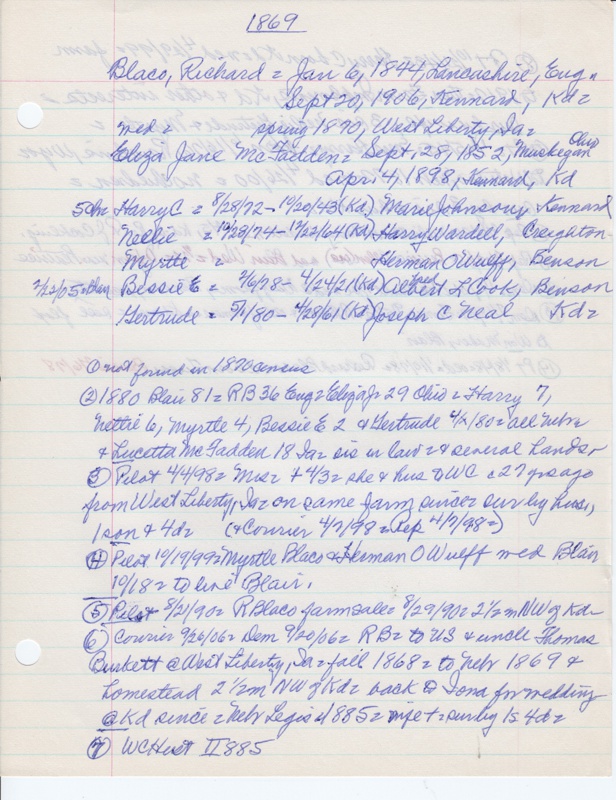 1869
Blaco, Richard = Jan 6, 1844, Lancashire, Eng =
Sept 20, 1906, Kennard, Kd =
med = spring 1870, West Liberty, Ia =
Eliza Jane McFadden = Sept. 28, 1852, Muskegan Ohio
Apr. 4, 1898, Kennard, Kd
5ch Harry C = 8/28/72 - 10/20/43 (Kd) Marie Johnson, Kennard
Nellie = 10/28/74 - 12/22/64 (Kd) Harry Wardell, Creighton
Myrtle = Herman O Wulff, Benson
2/22/05 = Blair Bessie E = 2/6/78 - 4/24/21 (Kd) Albert L Cook, Benson
Gertrude = 5/1/80 - 4/28/61 (Kd) Joseph C Neal Kd =
① not found in 1870 census
② 1880 Blair 81 = RB 36 Eng = Eliza J = 29 Ohio = Harry 7,
Nettie 6, Myrtle 4, Bessie E 2 & Gertrude 4/2/80 = all Nebr
& Lucetta McFadden 18 Ia = sis in law = & several hands,
③ Pilot 4/4/98 = Mrs = + 4/3 = she & hus to WC c 27 yrs ago
from West Liberty, Ia = on same farm since = sur by hus,
1 son & 4 d = (& Courier 4/7/98 = Rep 4/7/98 =)
④ Pilot 10/19/99 = Myrtle Blaco & Herman O Wulff med Blair
10/18 = to live Blair.
⑤ Pilot 5/21/90 = R Blaco farm sale = 8/29/90 = 2 1/2 m NW of Kd =
⑥ Courier 9/26/06 = Dem 9/20/06 = RB = to US & uncle Thomas
Burkett @ West Liberty, Ia = fall 1868 = to Nebr 1869 &
homestead 2 1/2 m NW of Kd = back to Iowa for wedding
@ Kd since = Nebr Legis 1885 = wife + = sur by 1 s 4 d =
⑦ WC Hist II 885